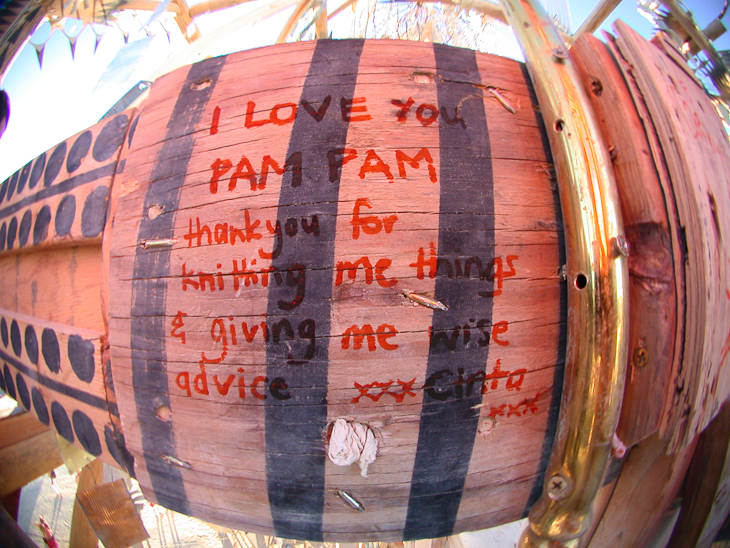 I LOVE YOU
PAM PAM
thankyou for
knitting me things
& giving me wise
advice xxx Cinta
xxx